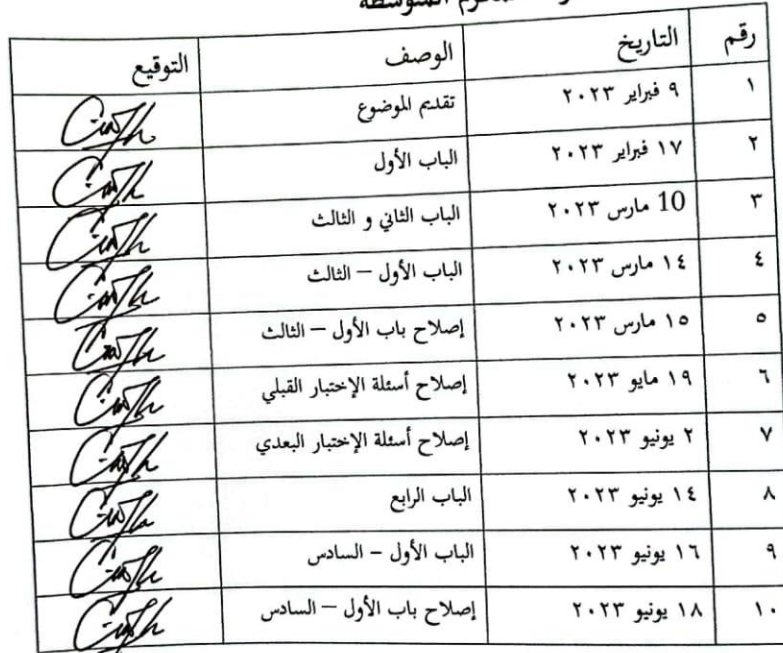 المتوسطة
رقم التاريخ الوصف التوقيع
١ ٩ فبراير ٢٠٢٣ تقديم الموضوع
٢ ١٧ فبراير ٢٠٢٣ الباب الأول
٣ 10 مارس ٢٠٢٣ الباب الثاني و الثالث
٤ ١٤ مارس ٢٠٢٣ الباب الأول – الثالث
٥ ١٥ مارس ٢٠٢٣ إصلاح باب الأول – الثالث
٦ ١٩ مايو ٢٠٢٣ إصلاح أسئلة الإختبار القبلي
٧ ٢ يونيو ٢٠٢٣ إصلاح أسئلة الإختبار البعدي
٨ ١٤ يونيو ٢٠٢٣ الباب الرابع
٩ ١٦ يونيو ٢٠٢٣ الباب الأول – السادس
١٠ ١٨ يونيو ٢٠٢٣ إصلاح باب الأول – السادس